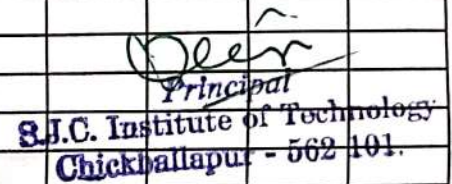 Principal
S.J.C. Institute of Technology
Chickballapur - 562 101.